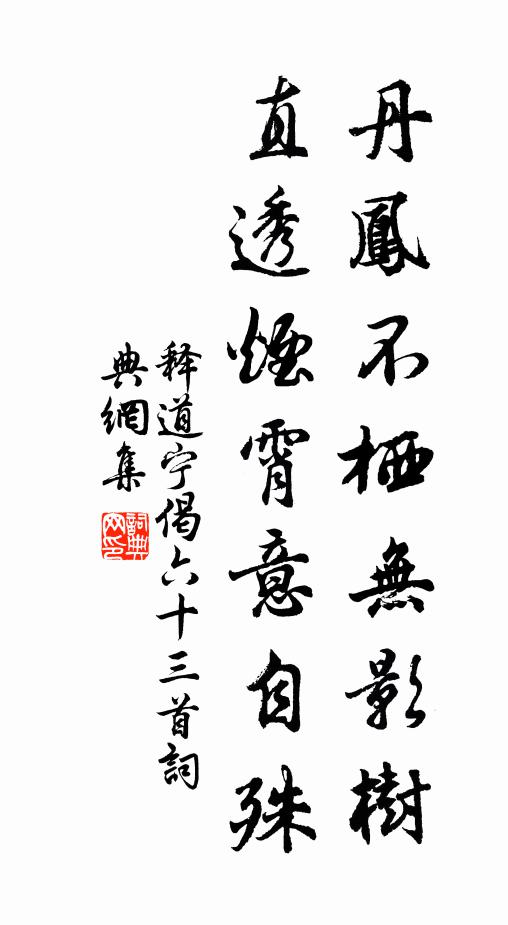 丹鳳不栖無影樹
直透煙霄意自殊
释道宁偈六十三首詞
典網集
詞典
网印